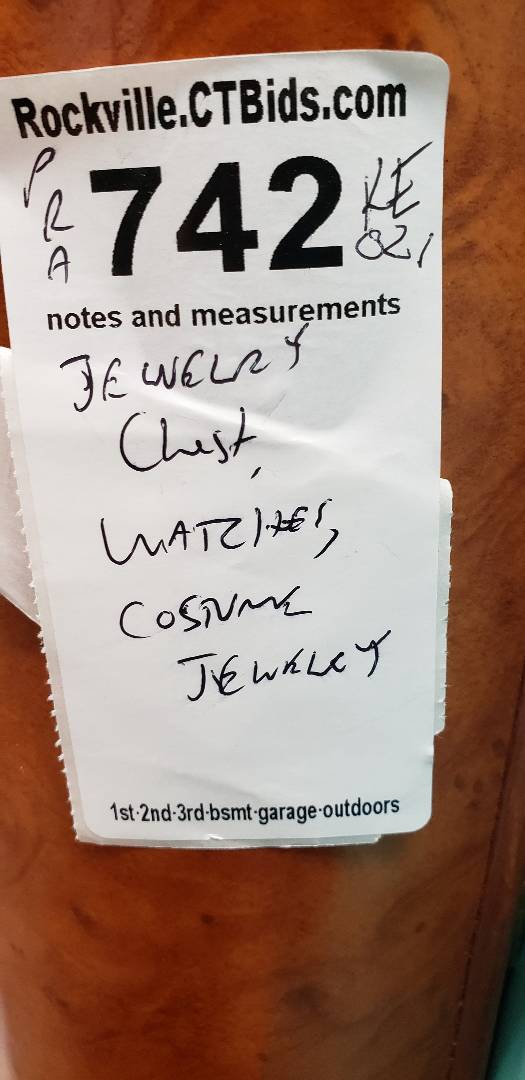 Rockville.CTBids.com
PRA 742 KE
021
notes and measurements
JEWELRY
Chest,
WATCHES,
COSTUME
JEWELRY
1st·2nd·3rd·bsmt·garage·outdoors